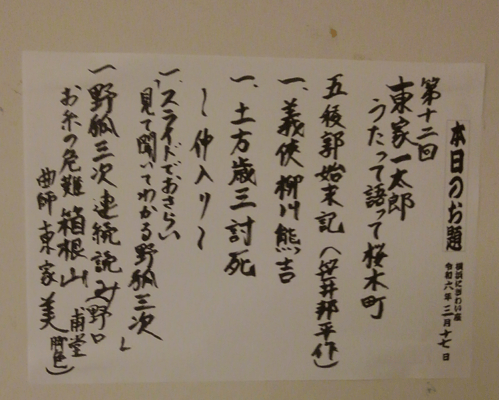 本日のお題
横浜にぎわい座
令和六年三月十七日
第十二回
東家一太郎
うたって語って桜木町
五稜郭始末記(笹井邦平作)
一、義侠柳川熊吉
一、土方歳三討死
〜仲入り〜
一、スライドでおさらい
「見て聞いてわかる野狐三次」
一野狐三次連続読み
お糸の危難箱根山
曲師東家美